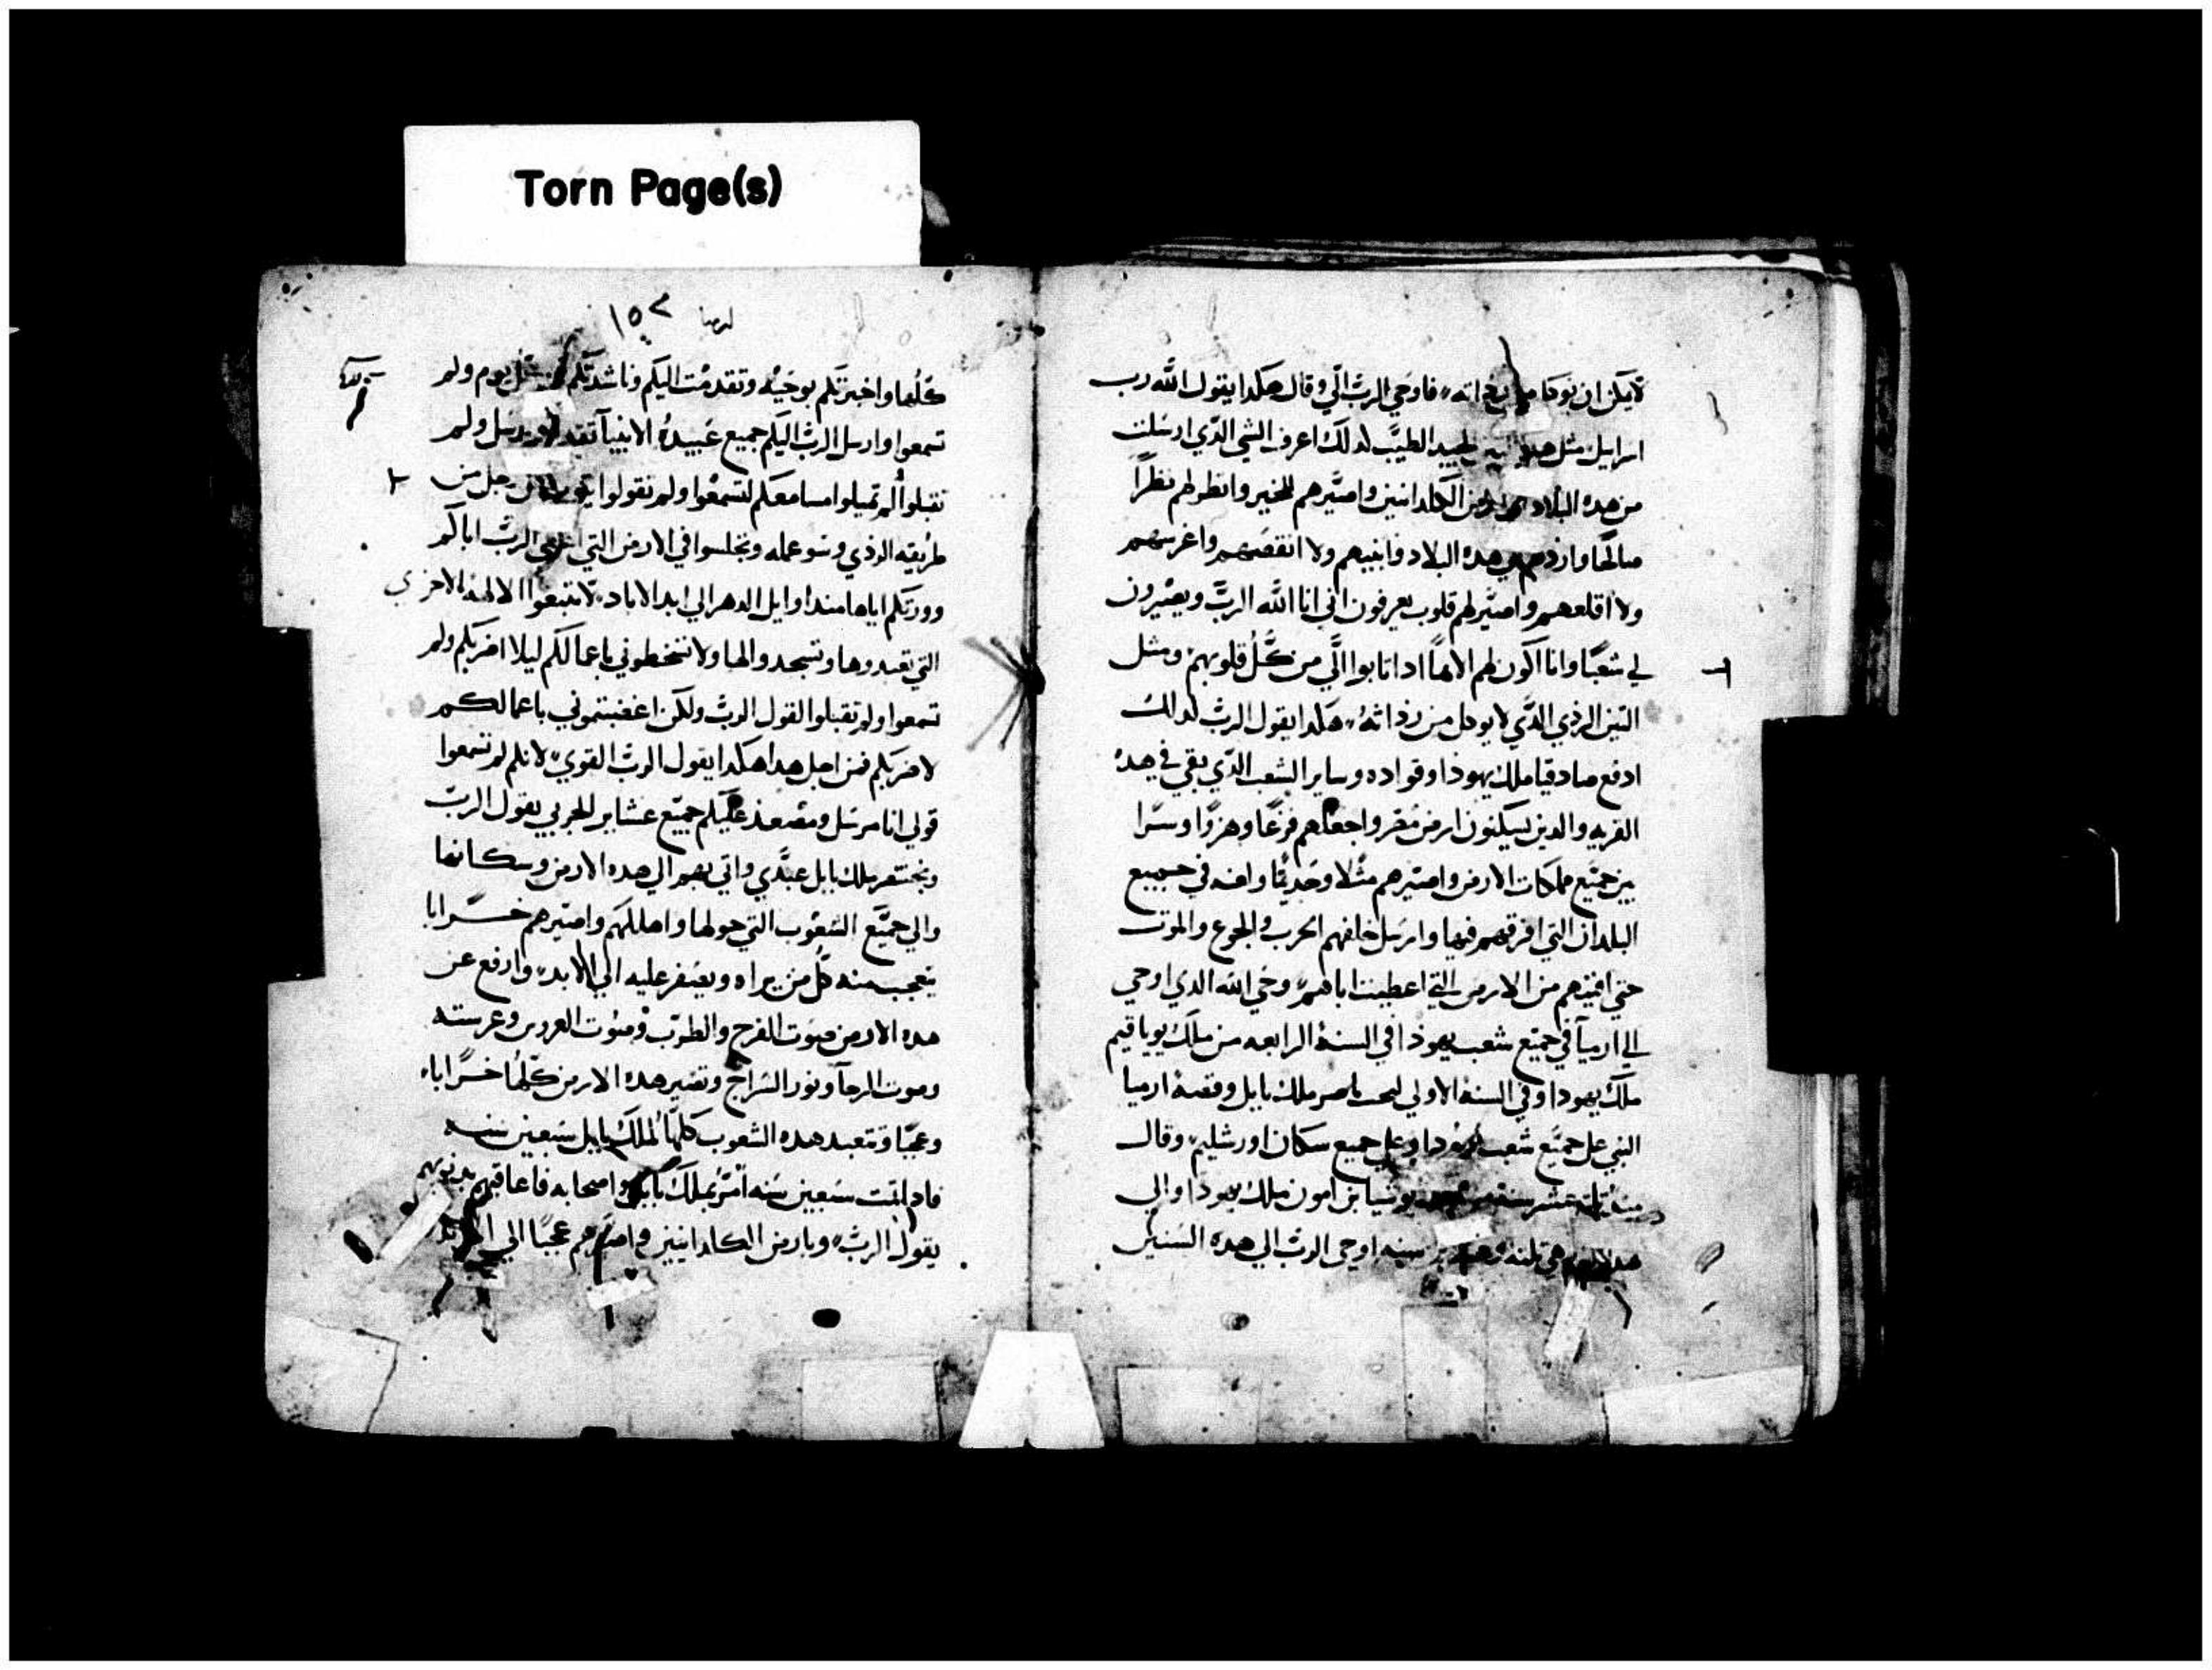 Torn Page(s)
لا يكل ان يوكل من رداته فاوحي الرب الي وقال هكدا يقول الله رب
اسرايل مثل هدا التين الجيد الطيب لدلك اعرف الشي الدي ارسلت
من هده البلاد الي ارض الكلدانيين واصيرهم للخير وانظر لهم نظرا
صالحا واردهم الي هده البلاد فابنيهم ولا انقضهم واغرسهم
ولا اقلعهم واصير لهم قلوب يعرفون اني انا الله الرب ويصيرون
لي شعبا وانا اكون لهم الاها ادا تابوا الي من كل قلوبهم ومثل
التين الردي الدي لا يوكل من رداته هكدا يقول الرب لدلك
ادفع صادقيا ملك يهودا وقواده وساير الشعب الدي بقي في هده
القريه والدين يسكنون ارض مصر واجعلهم فزعا وهزوا وسرا
بين جميع مملكات الارض واصيرهم مثلا وحديثا وافه في جميع
البلدان التي افرقهم فيها وارسل خلفهم الحرب والجوع والموت
حتي افنيهم من الارض التي اعطيت اباهم وحي الله الدي اوحي
الي ارميا في جميع شعب يهودا في السنة الرابعه من ملك يوياقيم
ملك يهودا وفي السنة الاولي لبحت ناصر ملك بابل وقصة ارميا
النبي علي جميع شعب يهودا وعلي جميع سكان اورشليم وقال
عشر سنة يوشيا بن امون ملك يهودا والي
هدا اليوم هي تلته وعشرين سنه اوحي الرب الي هده السنين
ارميا ١٥٢
كلها واخبرتكم بوحيه وتقدمت اليكم وناشدتكم كل يوم ولم
تسمعوا وارسل الرب اليكم جميع عبيده الانبيا تقدم ولم
تقبلوا الم تميلوا مسامعكم لتسمعوا ولم تقولوا رجل من
طريقه الردي وسو عمله وتجلسوا في الارض التي اعطي الرب اباكم
وورتكم اياها مند اوايل الدهر الي ابد الاباد لا تتبعوا الالهة الاخري
التي تعبدوها وتسجدوا لها ولا تسخطوني باعمالكم ليلا اضربكم ولم
تسمعوا ولم تقبلوا القول الرب ولكن اغضبتموني باعمالكم
لاضربكم فمن اجل هدا هكدا يقول الرب القوي لانكم لم تسمعوا
قولي انا مرسل ومصعد عليكم جميع عشاير الجربي يقول الرب
وبختنصر ملك بابل عبدي واتي بهم الي هده الارض وسكانها
والي جميع الشعوب التي حولها واهلكهم واصيرهم خرابا
يتعجب منه كل من يراه ويصفر عليه الي الابد وارفع عن
هده الارض صوت الفرح والطرب وصوت العروس وعرسته
وصوت الرحا ونور السراج وتصير هده الارض كلها خرابا
وعجبا وتتعبد هده الشعوب كلها لملك بابل سبعين سنه
فادا تمت سبعين سنه امر بملك بابل واصحابه فاعاقبهم بدنوبهم
يقول الرب وبارض الكلدانيين واصيرهم عجبا الي الابد